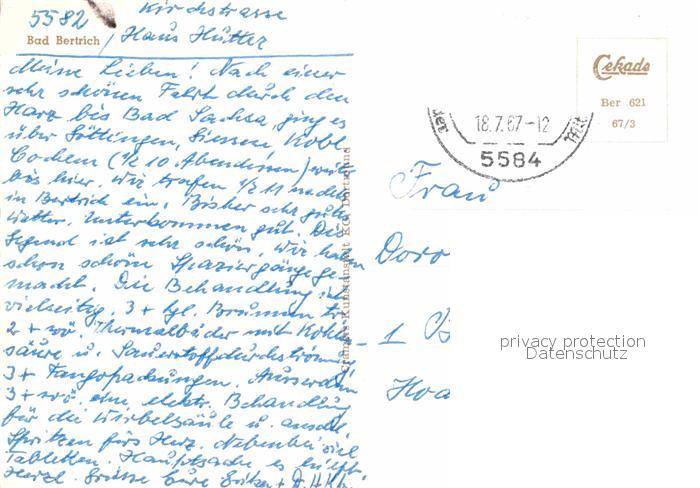 Kirchstrasse
5582
Bad Bertrich / Haus Hütter
Meine Lieben! Nach einer
sehr schönen Fahrt durch den
Harz bis Bad Sachsa, ging es
über Göttingen, Giessen, Kobl.
Cochem (1/2 10 Abendessen) weiter
bis hier. Wir trafen 1/2 11 nachts
in Bertrich ein. Bisher sehr gutes
Wetter. Unterkommen gut. Die
Gegend ist sehr schön, wir haben
schon schöne Spaziergänge ge-
macht. Die Behandlung ist
vielseitig. 3 + tgl. Brunnen tr.
2 + wö. Thermalbäder mit Kohlen-
säure u. Sauerstoffdurchströmung
3 + Fangopackungen. Ausserdem
3 + wö. eine elektr. Behandlung
für die Wirbelsäule u. anschl.
Spritzen fürs Herz. Nebenbei viel
Tabletten. Hauptsache es hilft.
Herzl. Grüsse Eure
Cekade
Ber 621
67/3
18.7.67-12
5584
Frau
Doro
1 B
Hoa
privacy protection
Datenschutz